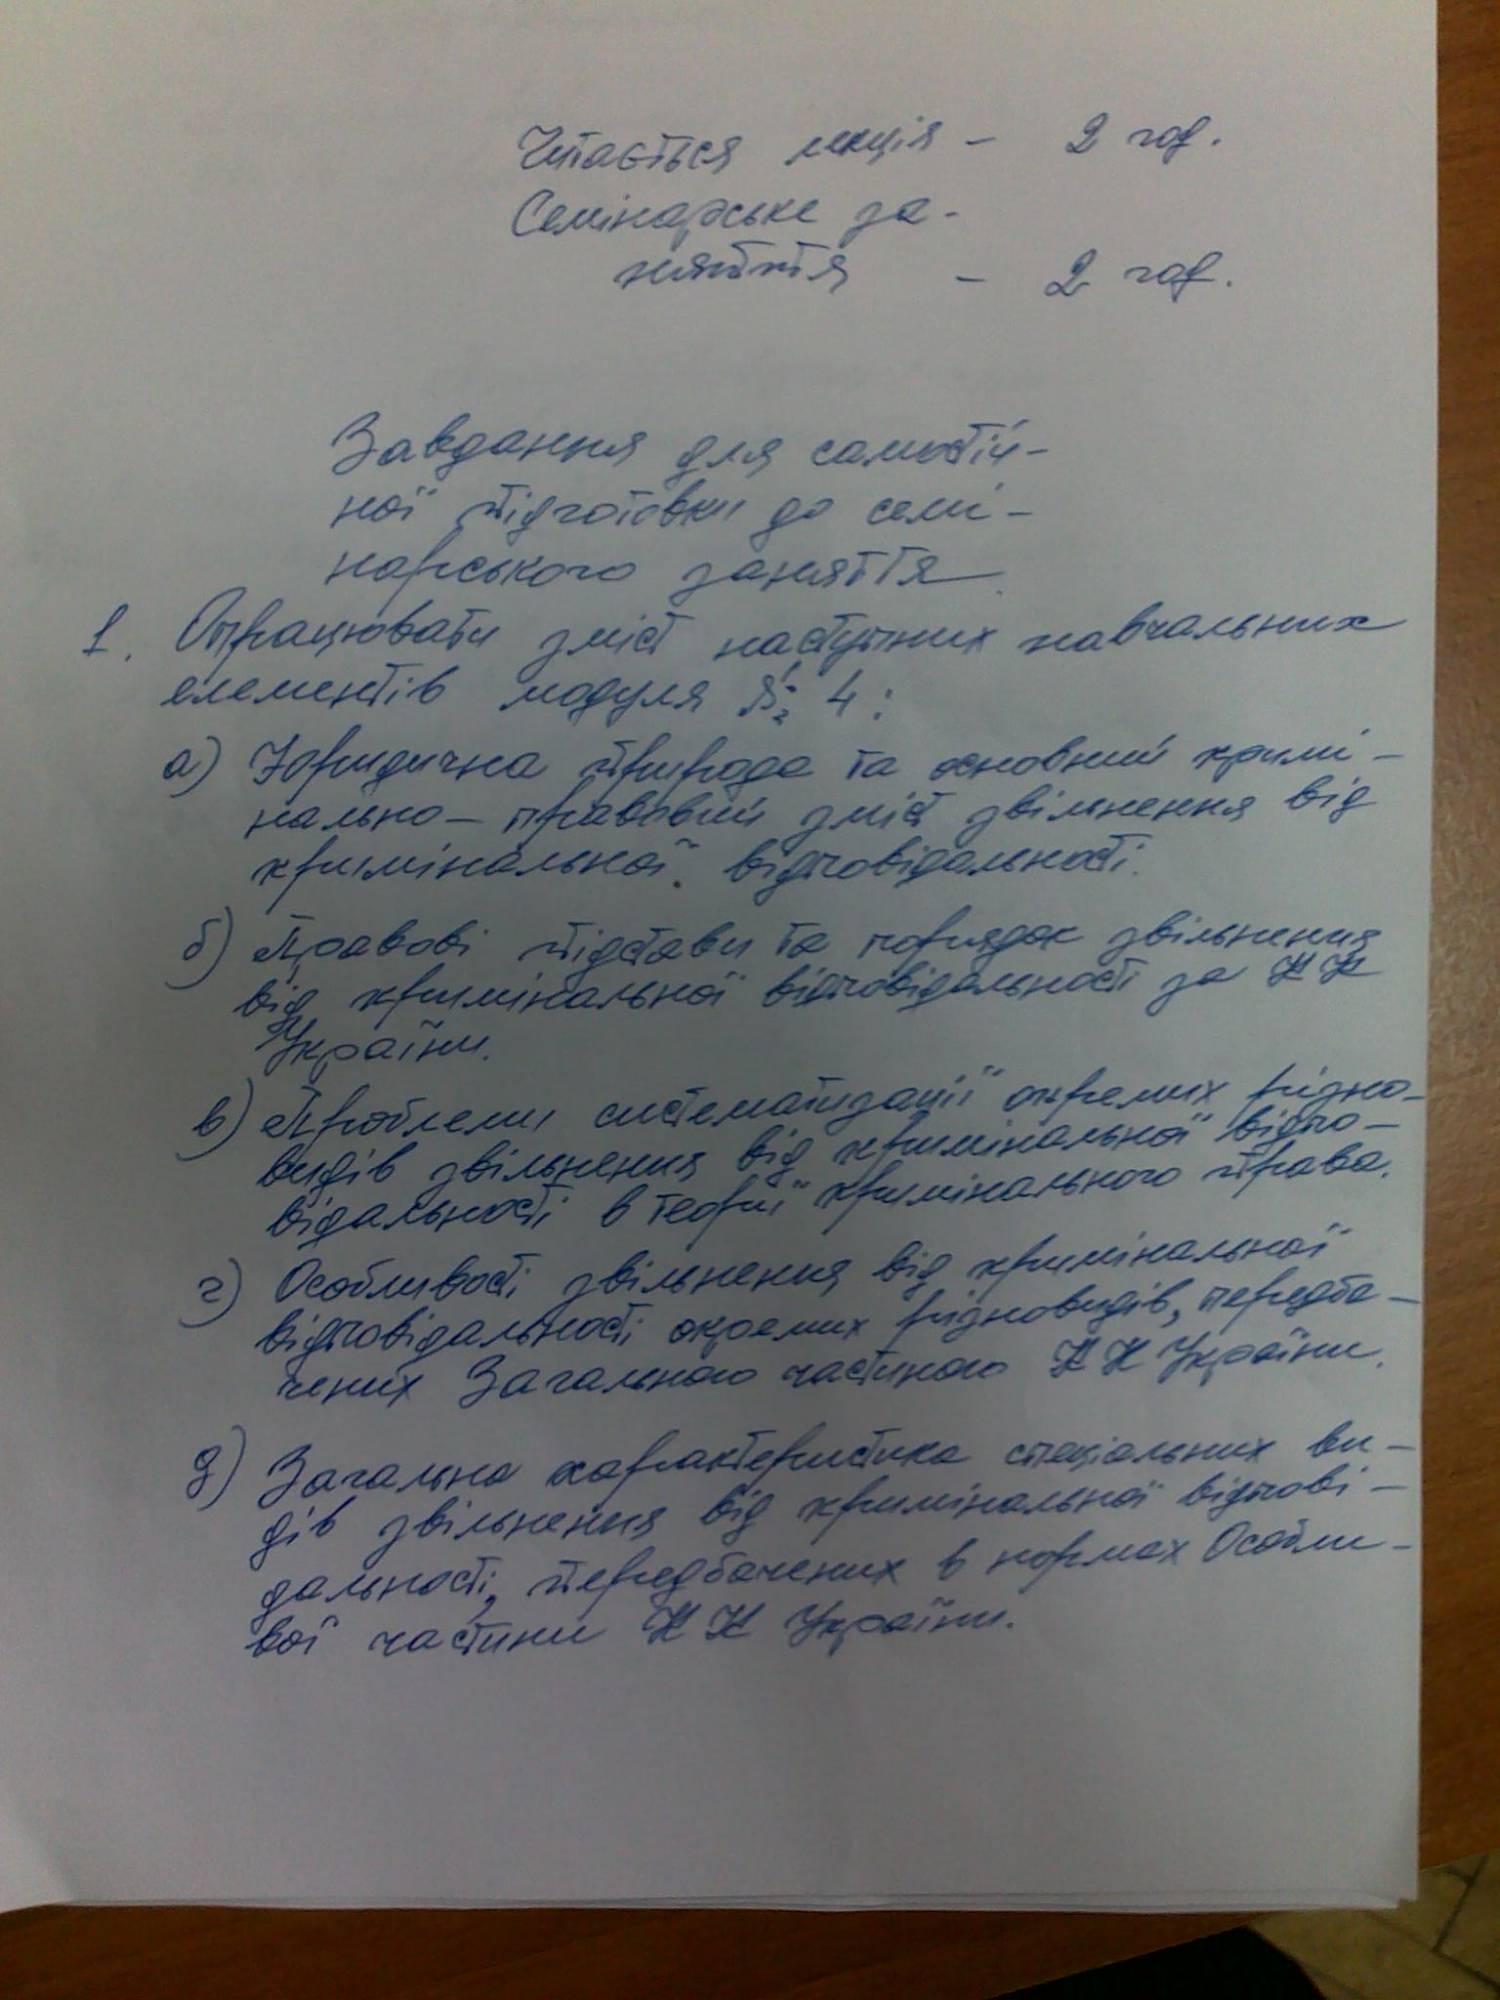 Читається лекція – 2 год.
Семінарське за-
няття – 2 год.
Завдання для самостій-
ної підготовки до семі-
нарського заняття.
1. Опрацювати зміст наступних навчальних
елементів модуля 4:
а) Юридична природа та основний кримі-
нально-правовий зміст звільнення від
кримінальної відповідальності.
б) Правові підстави та порядок звільнення
від кримінальної відповідальності за КК
України.
в) Проблеми систематизації окремих різно-
видів звільнення від кримінальної відпо-
відальності в теорії кримінального права.
г) Особливості звільнення від кримінальної
відповідальності окремих різновидів, передба-
чених Загальною частиною КК України.
д) Загальна характеристика спеціальних ви-
дів звільнення від кримінальної відпові-
дальності, передбачених в нормах Особли-
вої частини КК України.